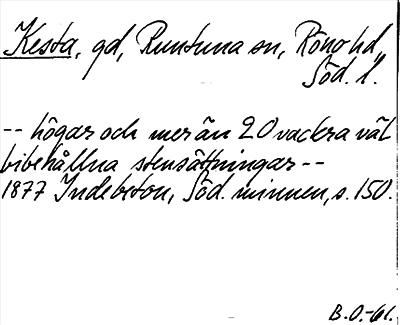 Kesta, gd, Runtuna sn, Rönö hd,
Söd. l.
-- högar och mer än 20 vackra väl
bibehållna stensättningar --
1877 Indebetou, Söd. minnen, s. 150.
B.O.-61.